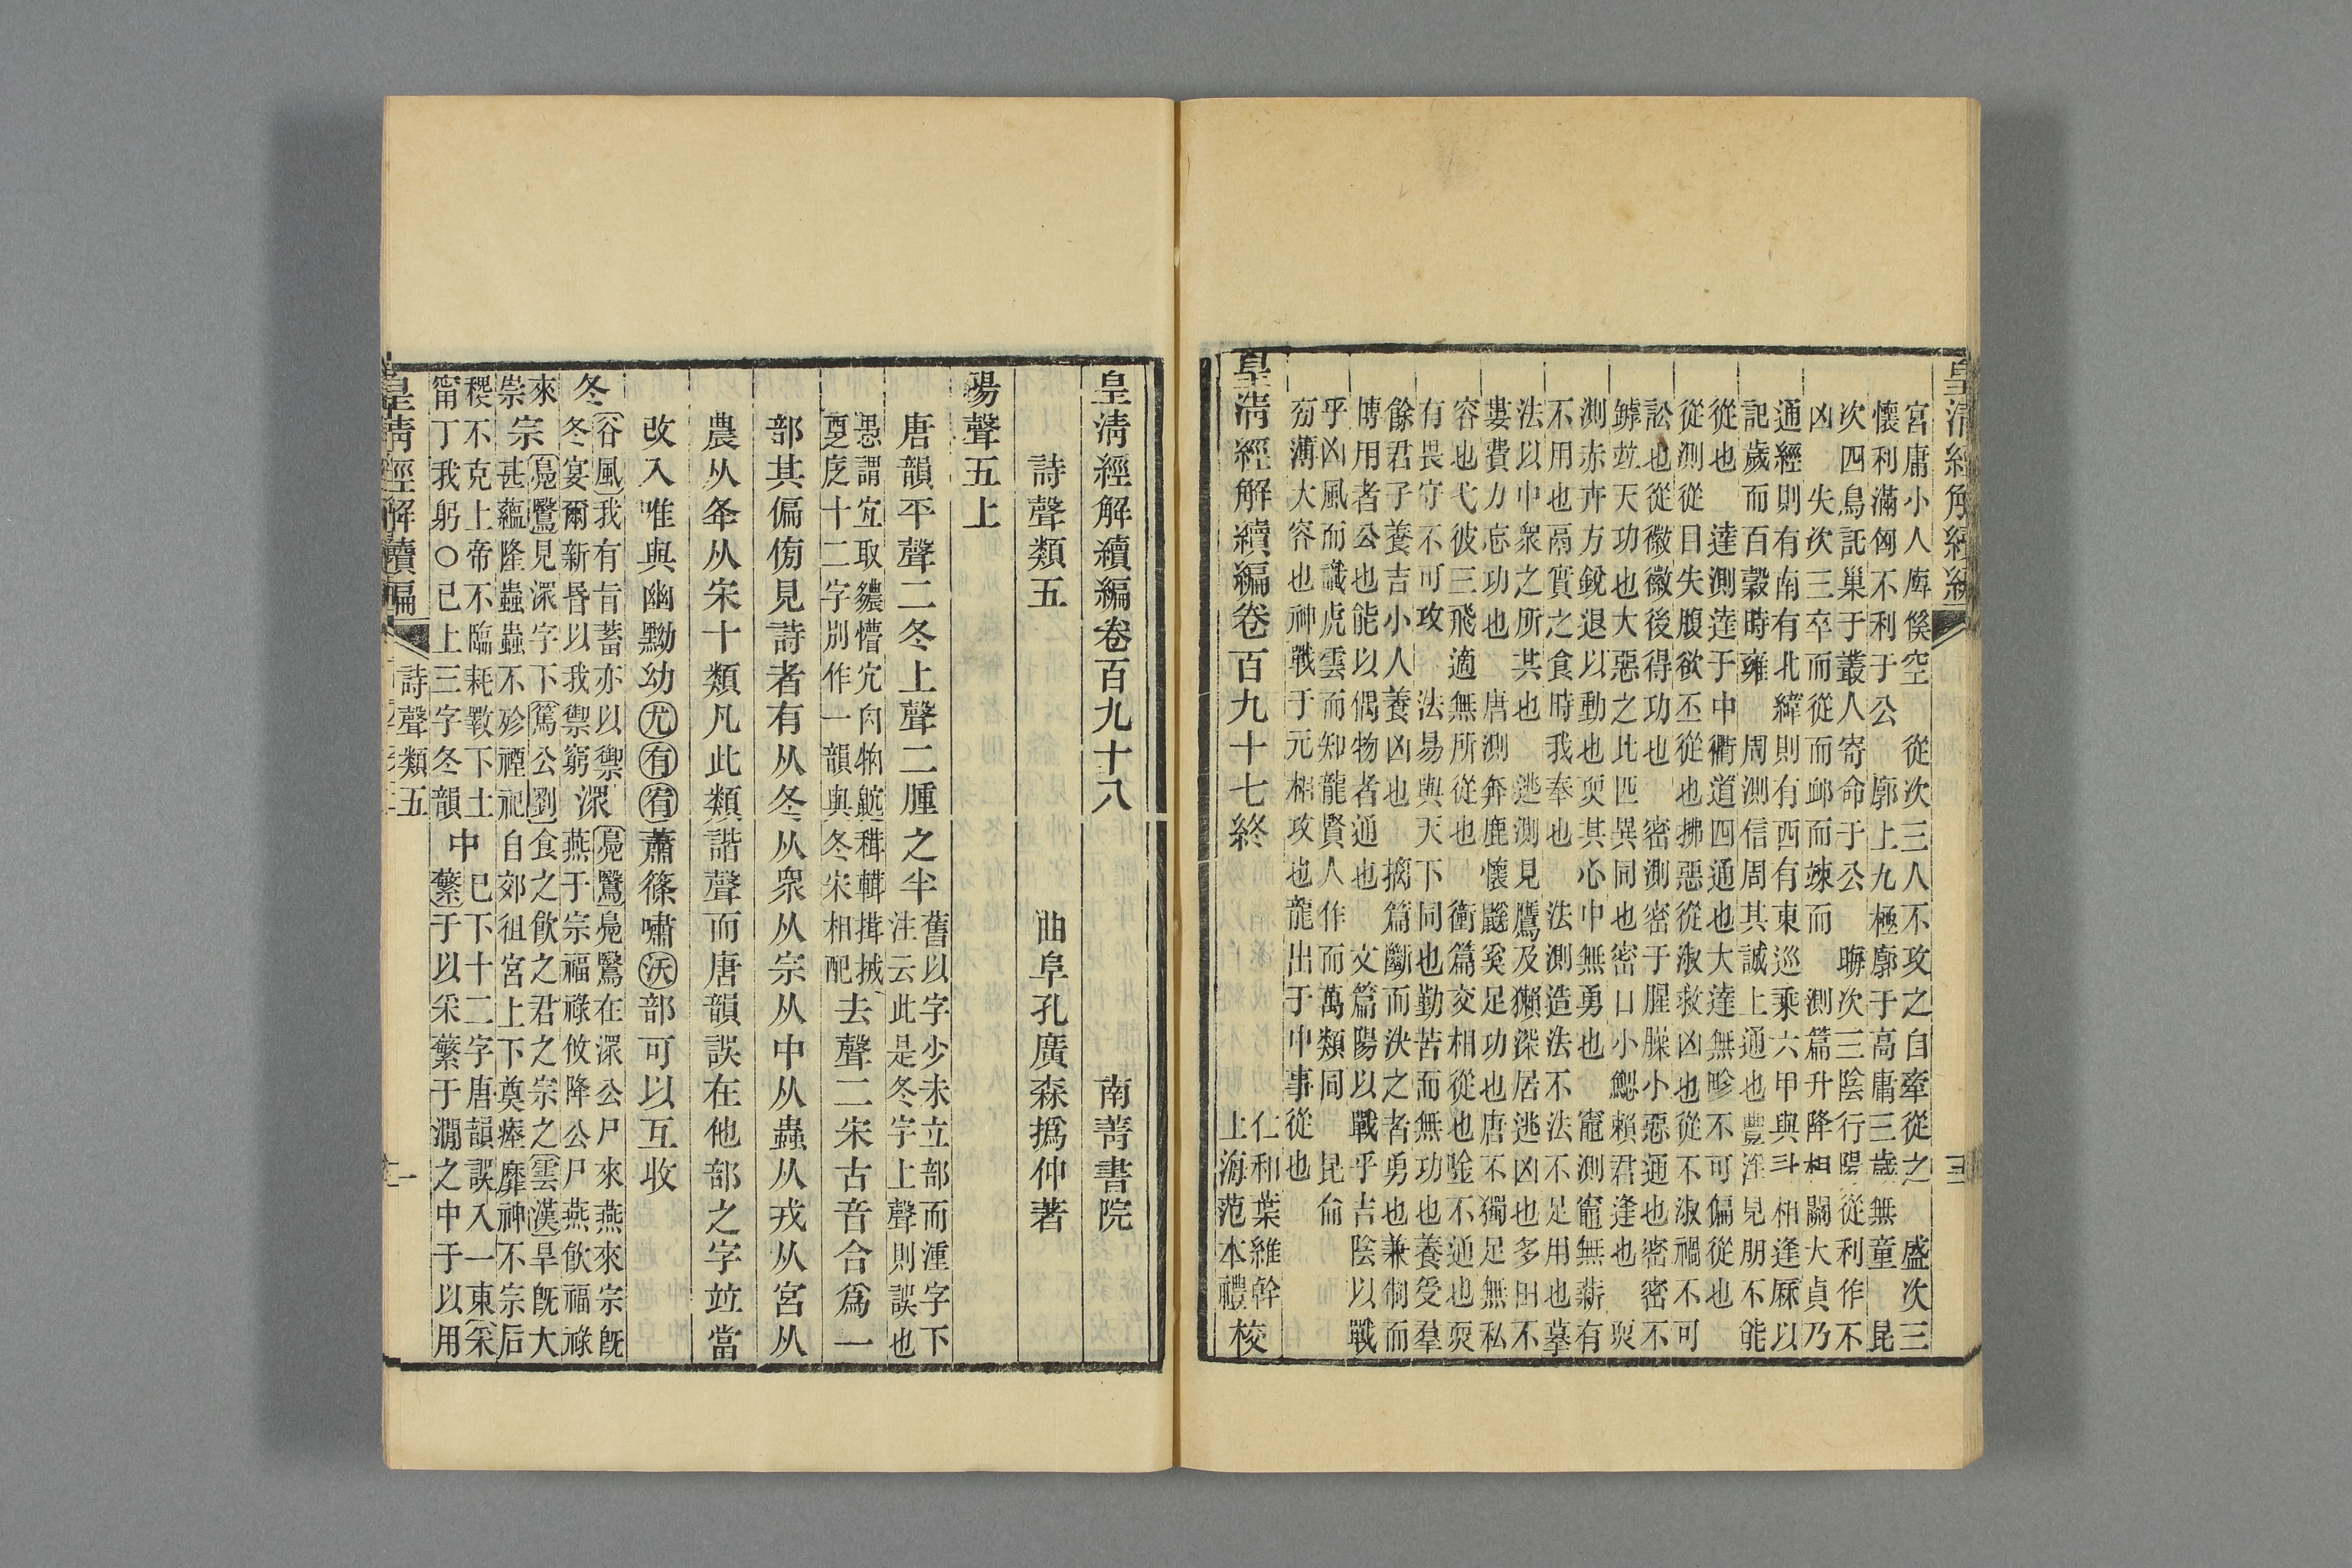 皇清經解續編
宮庸小人庳傒空　從次三八不攻之自牽從之　盛次三
懷利滿匈不利于公　廓上九極廓于高庸三歲無童　昆
次四鳥託巢于叢人寄命于公　晦次三陰行陽從利作不
凶　失次三卒而從而䘏而竦而　測篇升降相關大貞乃
通經則有南有北緯則有西有東巡乘六甲與斗相逢厤以
記歲而百穀時雍　周測信周其誠上通也豐淫見朋不能
從也　達測達于中衢道四通也大達無畛不可偏從也
從測從目失腹欲丕從也拂惡從淑救凶也從不淑禍不可
訟也從徽徽後得功也　密測密于腥臊小惡通也密密不
罅竝天功也大惡之比匹異同也密口小鰓賴君逢也　耎
測赤卉方銳退以動也耎其心中無勇也　竈測竈無薪有
不用也鬲實之食時我奉也　法測造法不法不足用也摹
法以中衆之所共也　逃測見鷹及獺深居逃凶也多田不
婁費力忘功也　唐測奔鹿懷鼷奚足功也唐不獨足無私
容也弋彼三飛適無所從也　衝篇交相從也陰不通也耎
有畏守不可攻　法易與天下同也勤苦而無功也養受羣
餘君子養吉小人養凶也　摛篇斷而決之者勇也兼制而
博用者公也能以偶物者通也　文篇陽以戰乎吉陰以戰
乎凶風而識虎雲而知龍賢人作而萬類同　昆侖
旁薄大容也神戰于元相攻也龍出于中事從也
仁和葉維幹
上海范本禮校
皇清經解續編卷百九十七終
皇清經解續編卷百九十八　南菁書院
詩聲類五　曲阜孔廣森撝仲著
陽聲五上
唐韻平聲二冬上聲二腫之半舊以字少未立部而湩字下
注云此是冬字上聲則誤也去聲二宋古音合爲一
部其偏㫄見詩者有从冬从衆从宗从中从蟲从戎从宮从
農从夅从宋十類凡此類諧聲而唐韻誤在他部之字竝當
改入唯與幽黝幼尤有宥蕭篠嘯沃部可以互收
冬谷風我有旨蓄亦以禦冬宴爾新昏以我禦窮
潨鳧鷖鳧鷖在潨公尸來燕來宗旣燕于宗福祿攸降公尸燕飲福祿
來崇宗鳧鷖見潨字下篤公劉食之飲之君之宗之雲漢旱旣大甚蘊隆蟲蟲不殄禋祀自郊徂宮上下奠瘞靡神不宗后
稷不克上帝不臨耗斁下土甯丁我躬○已上三字冬韻
中已下十二字唐韻誤入一東采蘩于以采蘩于澗之中于以用
皇清經解續編　詩聲類五　一